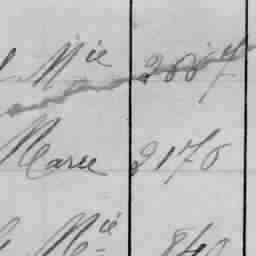 Mie 2087
Marie 2170
Mie 840